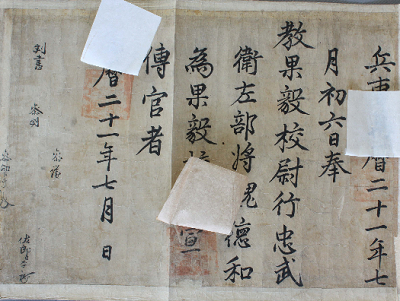 兵曹 曆二十一年七
月初六日奉
教果毅校尉行忠武
衛左部將 德和
為果毅校 宣
傳官者
曆二十一年七月 日
判書
叅判
叅議
佐郎